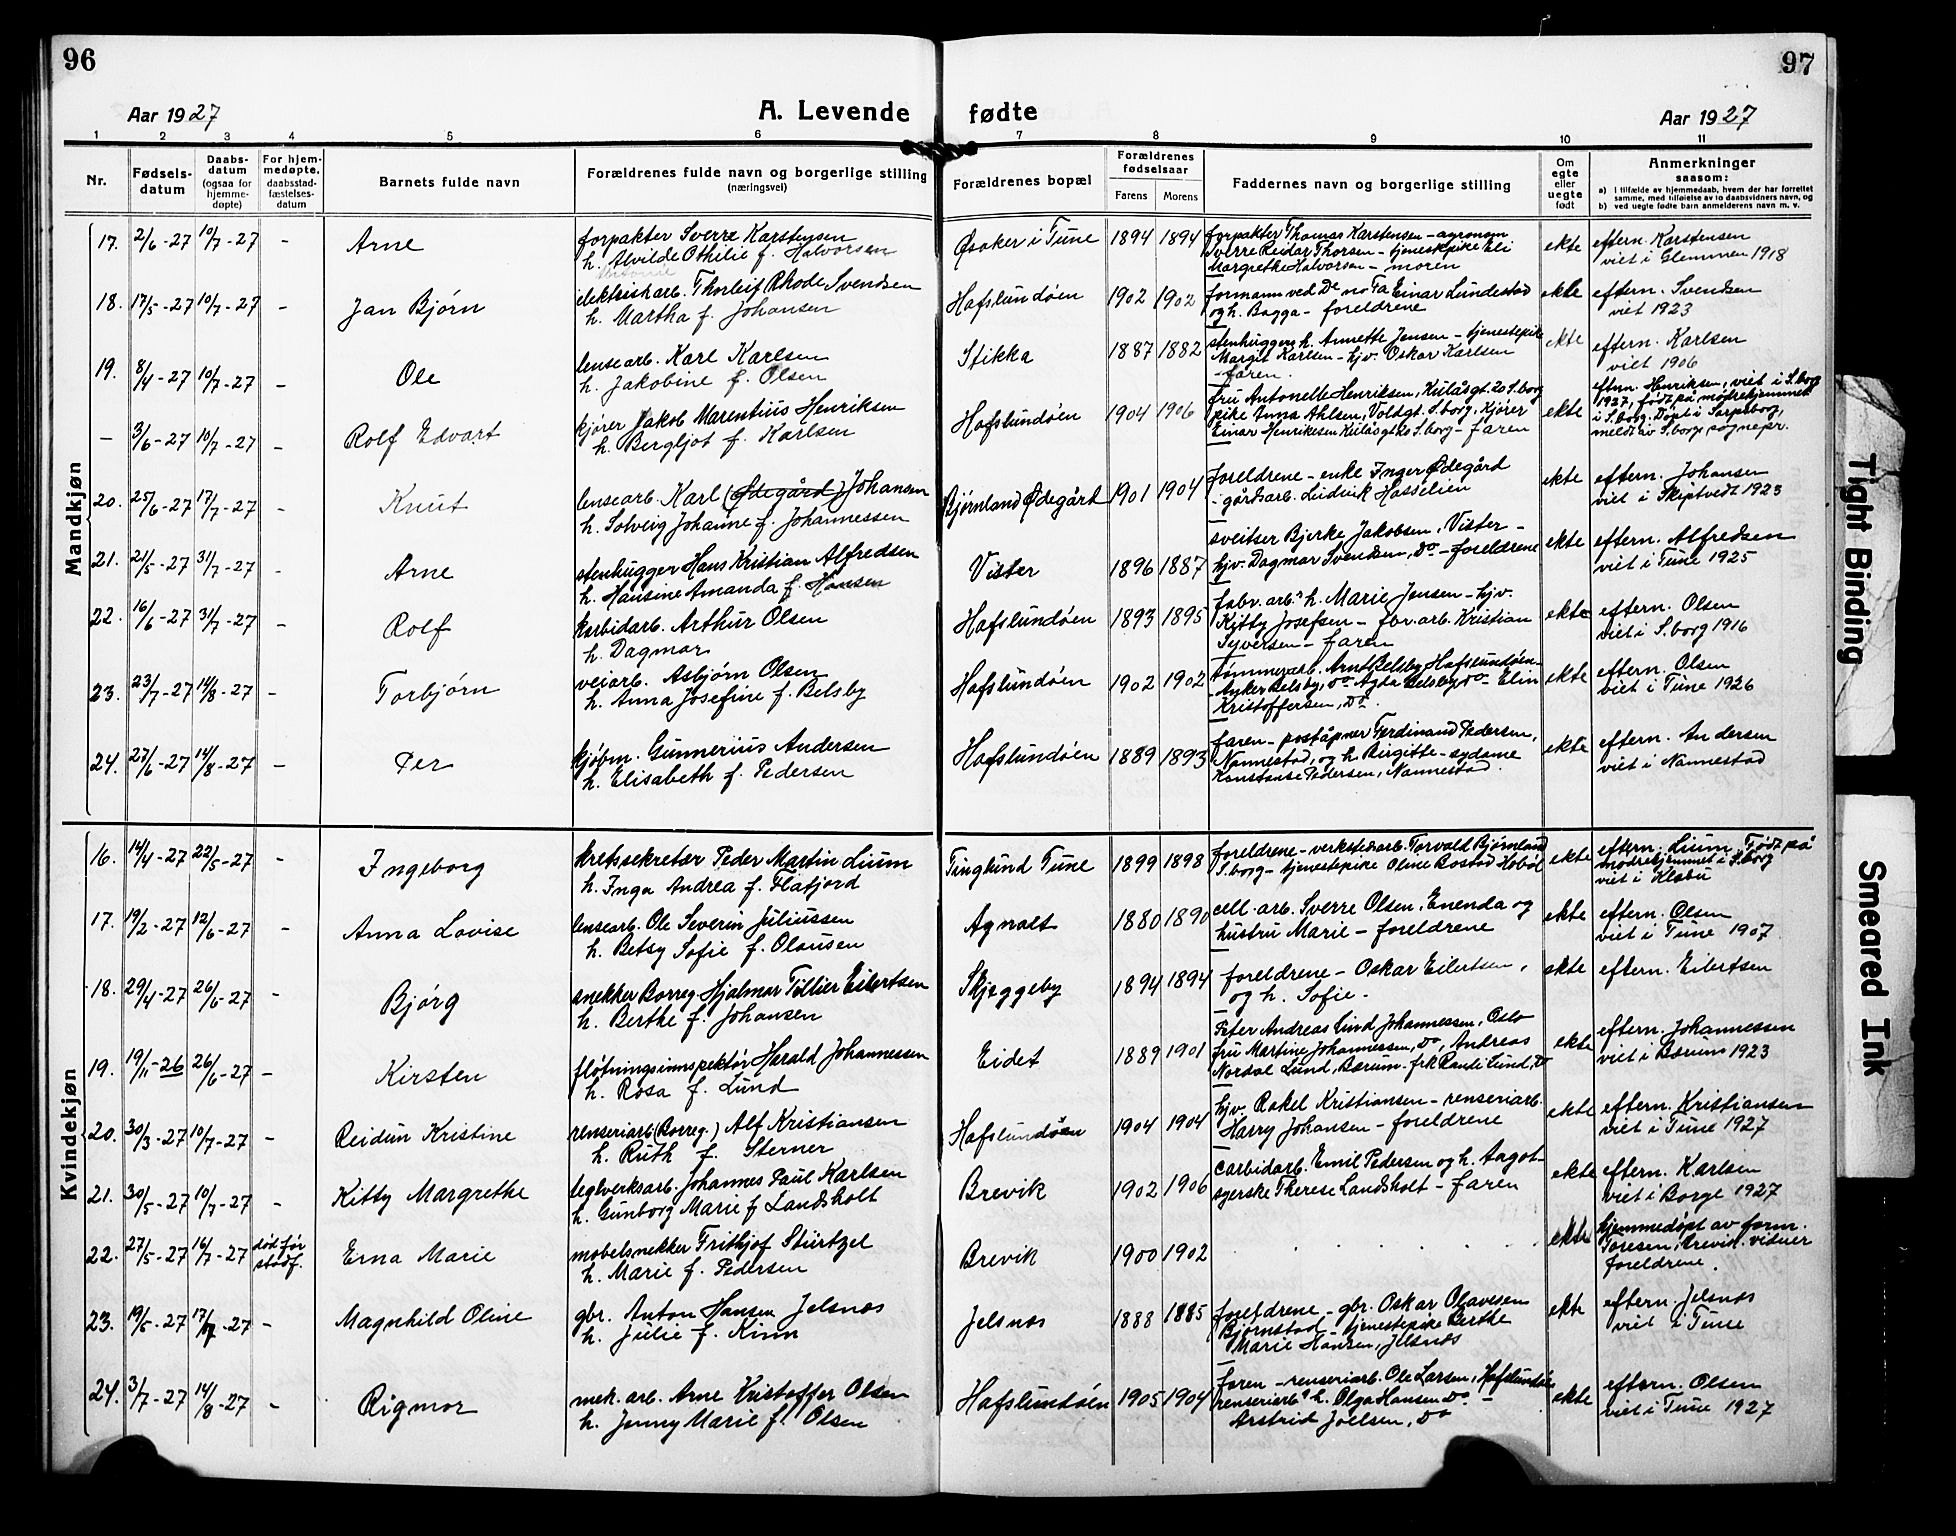 96
97
Aar 1927
A. Levende fødte
Aar 1927
1 2 3 4 5 6 7 8 9 10 11
Nr.
Fødsels-
datum
Daabs-
datum
(ogsaa for
hjemme-
døpte)
For hjem-
medøpte,
daabsstad-
fæstelses-
datum
Barnets fulde navn
Forældrenes fulde navn og borgerlige stilling
(næringsvei)
Forældrenes bopæl
Forældrenes
fødselsaar
Farens
Morens
Faddernes navn og borgerlige stilling
Om
egte
eller
uegte
født
Anmerkninger
saasom:
a) i tilfælde av hjemmedaab, hvem der har forrettet
samme, med tilføielse av to daabsvidners navn, og
b) ved uegte fødte barn anmelderens navn m. v.
Mandkjøn
17. 2/6-27 10/7-27 - Arne
forpakter Sverre Karstensen
h. Alvilde Othilie f. Halvorsen
Øsaker i Tune 1894 1894
forpakter Thomas Karstensen - agronom
Sverre Reidar Thorsen - tjenestepike Eli
Margrethe Halvorsen - moren
ekte
eftern. Karstensen
viet i Glemmen 1918
18. 17/5-27 10/7-27 - Jan Bjørn
elektriskarb. Thorleif Rhode Svendsen
h. Martha f. Johansen
Hafslundsøen 1902 1902
formann ved De no Fa Einar Lundestad
og h. Bagga - foreldrene
ekte
eftern. Svendsen
viet 1923
19. 8/4-27 10/7-27 - Ole
lensearb. Karl Karlsen
h. Jakobine f. Olsen
Stikka 1887 1882
stenhugger h. Annette Jensen - tjenestepike
Margit Karlsen - hjv. Oskar Karlsen
- faren.
ekte
eftern. Karlsen
viet 1906
- 3/6-27 10/7-27 - Rolf Edvart
kjører Jakob Marentius Henriksen
h. Bergljot f. Karlsen
Hafslundsøen 1904 1906
fru Antonette Henriksen, Kulåsgt. 20 S.borg
pike Anna Ahlsen, Voldgt. S.borg, Kjører
Einar Henriksen Kulåsgt 20 S.borg - faren
ekte
eftern. Henriksen, viet i S.borg
1927, født på mødrehjemmet
i S.borg. Døpt i Sarpsborg,
meldt av S.borgs sognepr.
20. 25/6-27 17/7-27 - Knut
lensearb. Karl (Ødegård) Johansen
h. Solveig Johanne f. Johannessen
Bjørnland Ødegård 1901 1904
foreldrene - enke Inger Ødegård
- gårdsarb. Leidrik Hasselien
ekte
eftern. Johansen
viet i Skiptvedt 1923
21. 21/5-27 31/7-27 - Arne
stenhugger Hans Kristian Alfredsen
h. Hansine Amanda f. Hansen
Vister 1896 1887
sveitser Bjerke Jakobsen, Vister -
hjv. Dagmar Svendsen, Do - foreldrene
ekte
eftern. Alfredsen
viet i Tune 1925
22. 16/6-27 31/7-27 - Rolf
karbidarb. Arthur Olsen
h. Dagmar
Hafslundsøen 1893 1895
fabr. arb.s h. Marie Jensen - hjv.
Kitty Josefsen - fbr. arb. Kristian
Syversen - faren
ekte
eftern. Olsen
viet i S.borg 1916
23. 23/7-27 14/8-27 - Torbjørn
veiarb. Asbjørn Olsen
h. Anna Josefine f. Belsby
Hafslundsøen 1902 1902
tømmerarb. Arnt Belsby, Hafslundsøen -
Anker Belsby, Do - Agda Belsby Do - Elin
Kristoffersen, Do.
ekte
eftern. Olsen
viet i Tune 1926
24. 27/6-27 14/8-27 - Per
kjøbm. Gunnerius Andersen
h. Elisabeth f. Pedersen
Hafslundsøen 1889 1893
faren - poståpner Ferdinand Pedersen,
Nannestad, og h. Birgitte - sydame
Konstanse Pedersen, Nannestad.
ekte
eftern. Andersen
viet i Nannestad
Kvindekjøn
16. 14/4-27 22/5-27 - Ingeborg
kretssekretær Peder Martin Lium
h. Inga Andrea f. Flafjord
Tinglund Tune 1899 1898
foreldrene - verkstedarb. Torvald Bjørnland
S.borg - tjenestepike Oline Bostad Hobøl
ekte
eftern. Lium. Født på
mødrehjemmet i S.borg
viet i Klæbu
17. 19/2-27 12/6-27 - Anna Lovise
lensearb. Ole Severin Juliussen
h. Betsy Sofie f. Olausen
Agnalt 1880 1890
cell. arb. Sverre Olsen, Enenda og
hustru Marie - foreldrene
ekte
eftern. Olsen
viet i Tune 1907
18. 29/4-27 26/6-27 - Bjørg
snekker Borreg. Hjalmar Tillier Eilertsen
h. Berthe f. Johansen
Skjeggeby 1894 1894
foreldrene - Oskar Eilertsen,
og h. Sofie.
ekte
eftern. Eilertsen
19. 19/11-26 26/6-27 - Kirsten
fløtningsinspektør Harald Johannessen
h. Rosa f. Lund
Eidet 1889 1901
Peter Andreas Lund Johannessen, Oslo
fru Martine Johannessen, Do, Andreas
Nordal Lund, Bærum - frk Randi Lund, Do
ekte
eftern. Johannessen
viet i Bærum 1923
20. 30/3-27 10/7-27 - Reidun Kristine
renseriarb (Borreg.) Alf Kristiansen
h. Ruth f. Sterner
Hafslundsøen 1904 1904
hjv. Rakel Kristiansen - renseriarb.
Harry Johansen - foreldrene
ekte
eftern. Kristiansen
viet i Tune 1927
21. 30/5-27 10/7-27 - Kitty Margrethe
teglverksarb. Johannes Paul Karlsen
h. Gunborg Marie f Landsholt
Brevik 1902 1906
carbidarb. Emil Pedersen og h. Aagot -
syerske Therese Landsholt - faren
ekte
eftern. Karlsen
viet i Borge 1927
22. 27/5-27 16/7-27 død før
stadf.
Erna Marie
møbelsnekker Frithjof Stürtzel
h. Marie f. Pedersen
Brevik 1900 1902
ekte
hjemmedøpt av form.
Toresen, Brevik. vidner
foreldrene.
23. 19/5-27 17/7-27 - Magnhild Oline
gbr. Anton Hansen Jelsnes
h. Julie f. Kinn
Jelsnes 1888 1885
foreldrene - gbr. Oskar Olavesen
Bjørnstad - tjenestepike Berthe
Marie Hansen, Jelsnes
ekte
eftern. Jelsnes
viet i Tune
24. 3/7-27 14/8-27 - Rigmor
mek. arb. Arne Kristoffer Olsen
h. Jenny Marie f. Olsen
Hafslundsøen 1905 1904
faren - renseriarb. Ole Larsen, Hafslundsøen
renseriarbs h. Olga Hansen Do -
Astrid Joelsen, Do
ekte
eftern. Olsen
viet i Tune 1927
Tight Binding
Smeared Ink